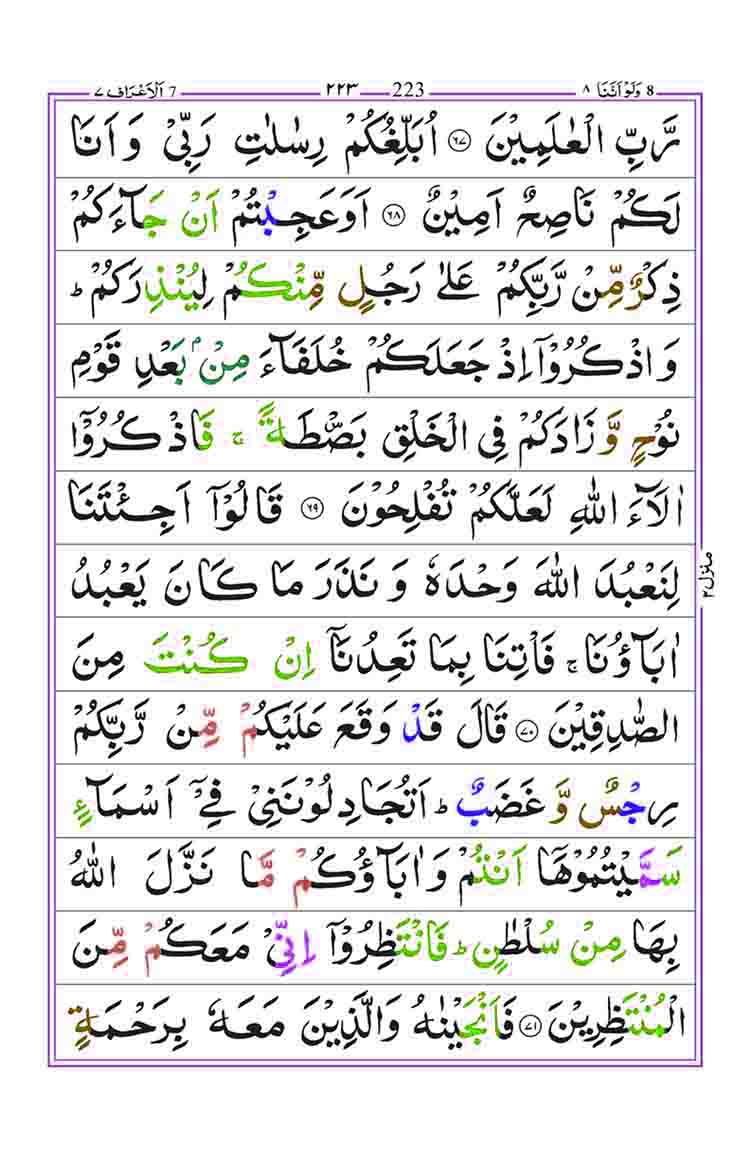 ٨ وَلَوْ اَنَّنَا 8 223 ٢٢٣ ٧ اَلْاَعْرَاف 7
رَّبِّ الْعٰلَمِيْنَ ۝٦٧ اُبَلِّغُكُمْ رِسٰلٰتِ رَبِّيْ وَ اَنَا
لَكُمْ نَاصِحٌ اَمِيْنٌ ۝٦٨ اَوَعَجِبْتُمْ اَنْ جَآءَكُمْ
ذِكْرٌ مِّنْ رَّبِّكُمْ عَلٰى رَجُلٍ مِّنْكُمْ لِيُنْذِرَكُمْ ؕ
وَ اذْكُرُوْۤا اِذْ جَعَلَكُمْ خُلَفَآءَ مِنْۢ بَعْدِ قَوْمِ
نُوْحٍ وَّ زَادَكُمْ فِي الْخَلْقِ بَصْۜطَةً ۚ فَاذْكُرُوْۤا
اٰلَآءَ اللّٰهِ لَعَلَّكُمْ تُفْلِحُوْنَ ۝٦٩ قَالُوْۤا اَجِئْتَنَا
لِنَعْبُدَ اللّٰهَ وَحْدَهٗ وَ نَذَرَ مَا كَانَ يَعْبُدُ
اٰبَآؤُنَا ۚ فَاْتِنَا بِمَا تَعِدُنَاۤ اِنْ كُنْتَ مِنَ
الصّٰدِقِيْنَ ۝٧٠ قَالَ قَدْ وَقَعَ عَلَيْكُمْ مِّنْ رَّبِّكُمْ
رِجْسٌ وَّ غَضَبٌ ؕ اَتُجَادِلُوْنَنِيْ فِيْۤ اَسْمَآءٍ
سَمَّيْتُمُوْهَاۤ اَنْتُمْ وَ اٰبَآؤُكُمْ مَّا نَزَّلَ اللّٰهُ
بِهَا مِنْ سُلْطٰنٍ ؕ فَانْتَظِرُوْۤا اِنِّيْ مَعَكُمْ مِّنَ
الْمُنْتَظِرِيْنَ ۝٧١ فَاَنْجَيْنٰهُ وَالَّذِيْنَ مَعَهٗ بِرَحْمَةٍ
منزل ٢